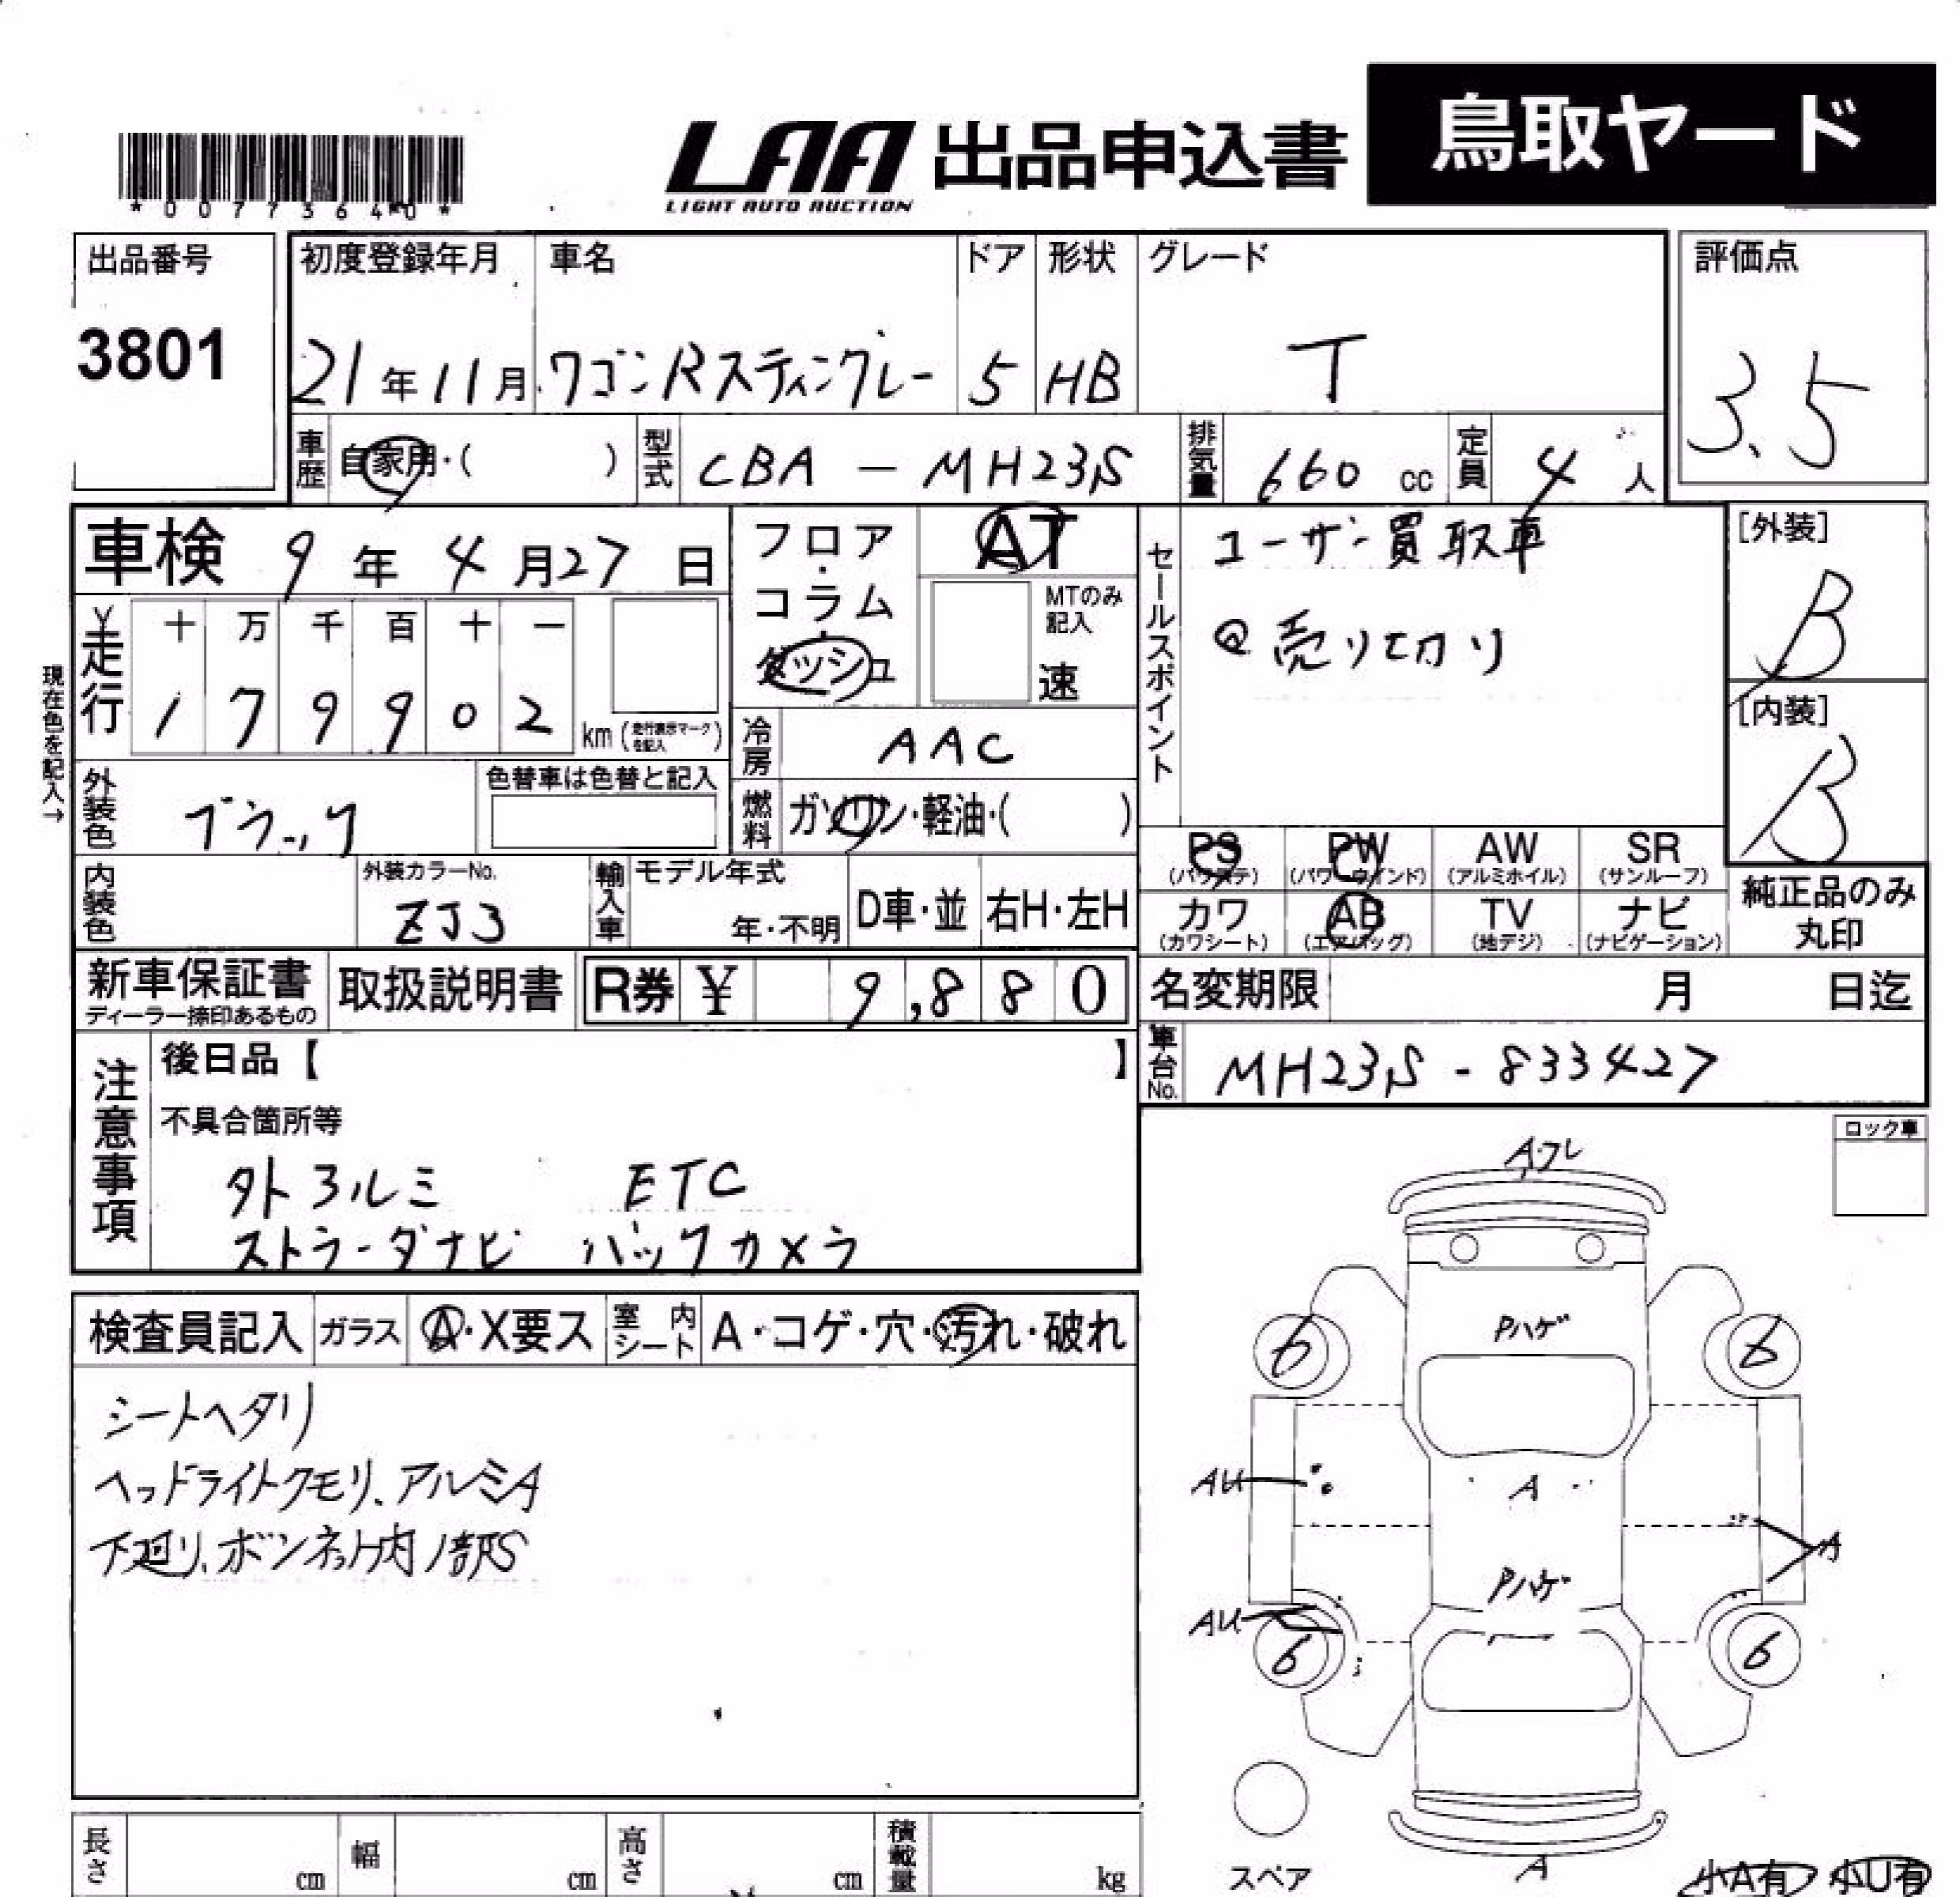 鳥取ヤード
LAA 出品申込書
LIGHT AUTO AUCTION
*00773640*
出品番号
3801
初度登録年月
21年11月
車名
ワゴンRスティングレー
ドア
5
形状
HB
グレード
T
評価点
3.5
車歴
自家用・( )
型式
CBA - MH23S
排気量
660 cc
定員
4人
車検 9年4月27日
フロア・コラム・ダッシュ
AT
MTのみ記入
速
セールスポイント
ユーザー買取車
売り切り
[外装]
B
[内装]
B
現在色を記入→
走行
十 万 千 百 十 一
1 7 9 9 0 2 km (走行表示マークを記入)
冷房
AAC
外装色
ブラック
色替車は色替と記入
燃料
ガソリン・軽油・( )
PS
(パワステ)
PW
(パワーウインド)
AW
(アルミホイル)
SR
(サンルーフ)
カワ
(カワシート)
AB
(エアバッグ)
TV
(地デジ)
ナビ
(ナビゲーション)
純正品のみ
丸印
内装色
外装カラーNo.
ZJ3
輸入車
モデル年式
年・不明
D車・並
右H・左H
新車保証書
ディーラー捺印あるもの
取扱説明書
R券 ¥ 9,880
名変期限 月 日迄
車台No.
MH23S - 833427
注意事項
後日品【 】
不具合箇所等
外アルミ ETC
ストラーダナビ バックカメラ
ロック車
検査員記入
ガラス
A・X要ス
室内シート
A・コゲ・穴・汚れ・破れ
シートヘタリ
ヘッドライトクモリ、アルミA
下廻り、ボンネット内ノ部S
A・フレ
Pハゲ
6
6
AU
A
A
Pハゲ
AU
6
6
スペア
A
小A有 小U有
長さ cm
幅 cm
高さ cm
積載量 kg